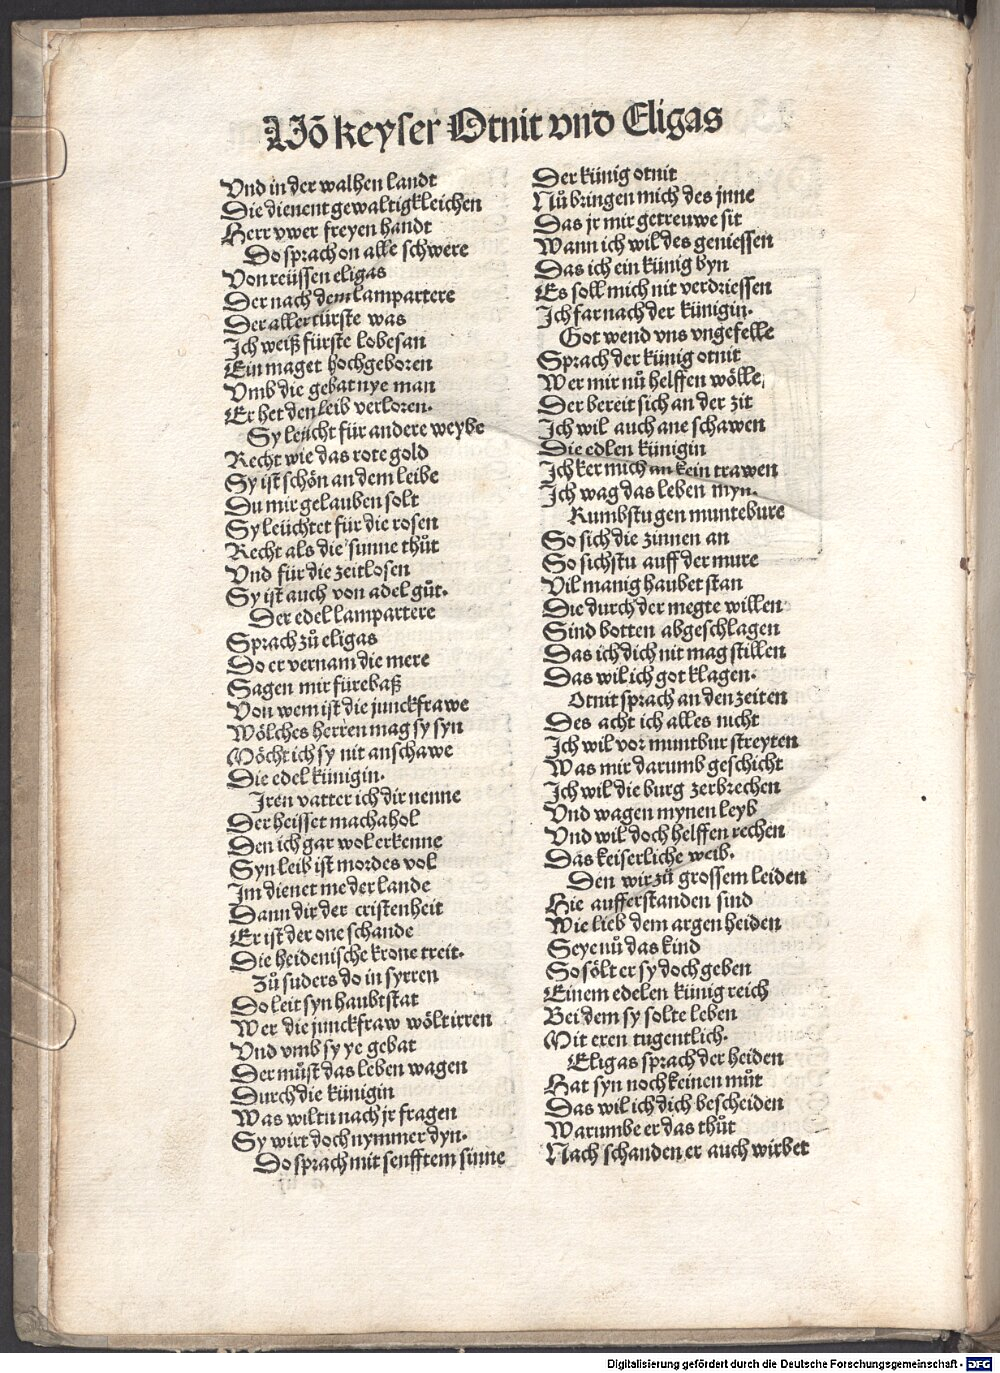 Vō keyser Otnit vnd Eligas
Vnd in der walhen landt
Die dienent gewaltigkleichen
Herr vwer freyen handt
Do sprach on alle schwere
Von reüssen eligas
Der nach dem lampartere
Der aller türste was
Ich weiß fürste lobesan
Ein maget hochgeboren
Vmb die gebat nye man
Er het den leib verloren.
Sy leücht für andere weybe
Recht wie das rote gold
Sy ist schön an dem leibe
Du mir gelauben solt
Sy leüchtet für die rosen
Recht als die sunne thůt
Vnd für die zeitlosen
Sy ist auch von adel gůt.
Der edel lampartere
Sprach zů eligas
Do er vernam die mere
Sagen mir fürebaß
Von wem ist die junckfrawe
Wölches herren mag sy syn
Möcht ich sy nit anschawe
Die edel künigin.
Iren vatter ich dir nenne
Der heisset machahol
Den ich gar wol erkenne
Syn leib ist mordes vol
Im dienet me der lande
Dann dir der cristenheit
Er ist der one schande
Die heidenische krone treit.
Zů suders do in syrren
Do leit syn haubtstat
Wer die junckfraw wölt irren
Vnd vmb sy ye gebat
Der můst das leben wagen
Durch die künigin
Was wiltu nach jr fragen
Sy wirt doch nymmer dyn.
Do sprach mit senfftem sinne
Der künig otnit
Nů bringen mich des jnne
Das jr mir getreuwe sit
Wann ich wil des geniessen
Das ich ein künig byn
Es soll mich nit verdriessen
Ich far nach der künigin.
Got wend vns vngefelle
Sprach der künig otnit
Wer mir nů helffen wölle,
Der bereit sich an der zit
Ich wil auch ane schawen
Die edlen künigin
Ich ker mich an kein trawen
Ich wag das leben myn.
Kumbstu gen muntebure
So sich die zinnen an
So sichstu auff der mure
Vil manig haubet stan
Die durch der megte willen
Sind botten abgeschlagen
Das ich dich nit mag stillen
Das wil ich got klagen.
Otnit sprach an den zeiten
Des acht ich alles nicht
Ich wil vor muntbur streyten
Was mir darumb geschicht
Ich wil die burg zerbrechen
Vnd wagen mynen leyb
Vnd wil doch helffen rechen
Das keiserliche weib.
Den wir zů grossem leiden
Hie aufferstanden sind
Wie lieb dem argen heiden
Seye nů das kind
So sölt er sy doch geben
Einem edelen künig reich
Bei dem sy solte leben
Mit eren tugentlich.
Eligas sprach der heiden
Hat syn noch keinen můt
Das wil ich dich bescheiden
Warumbe er das thůt
Nach schanden er auch wirbet
Digitalisierung gefördert durch die Deutsche Forschungsgemeinschaft - DFG